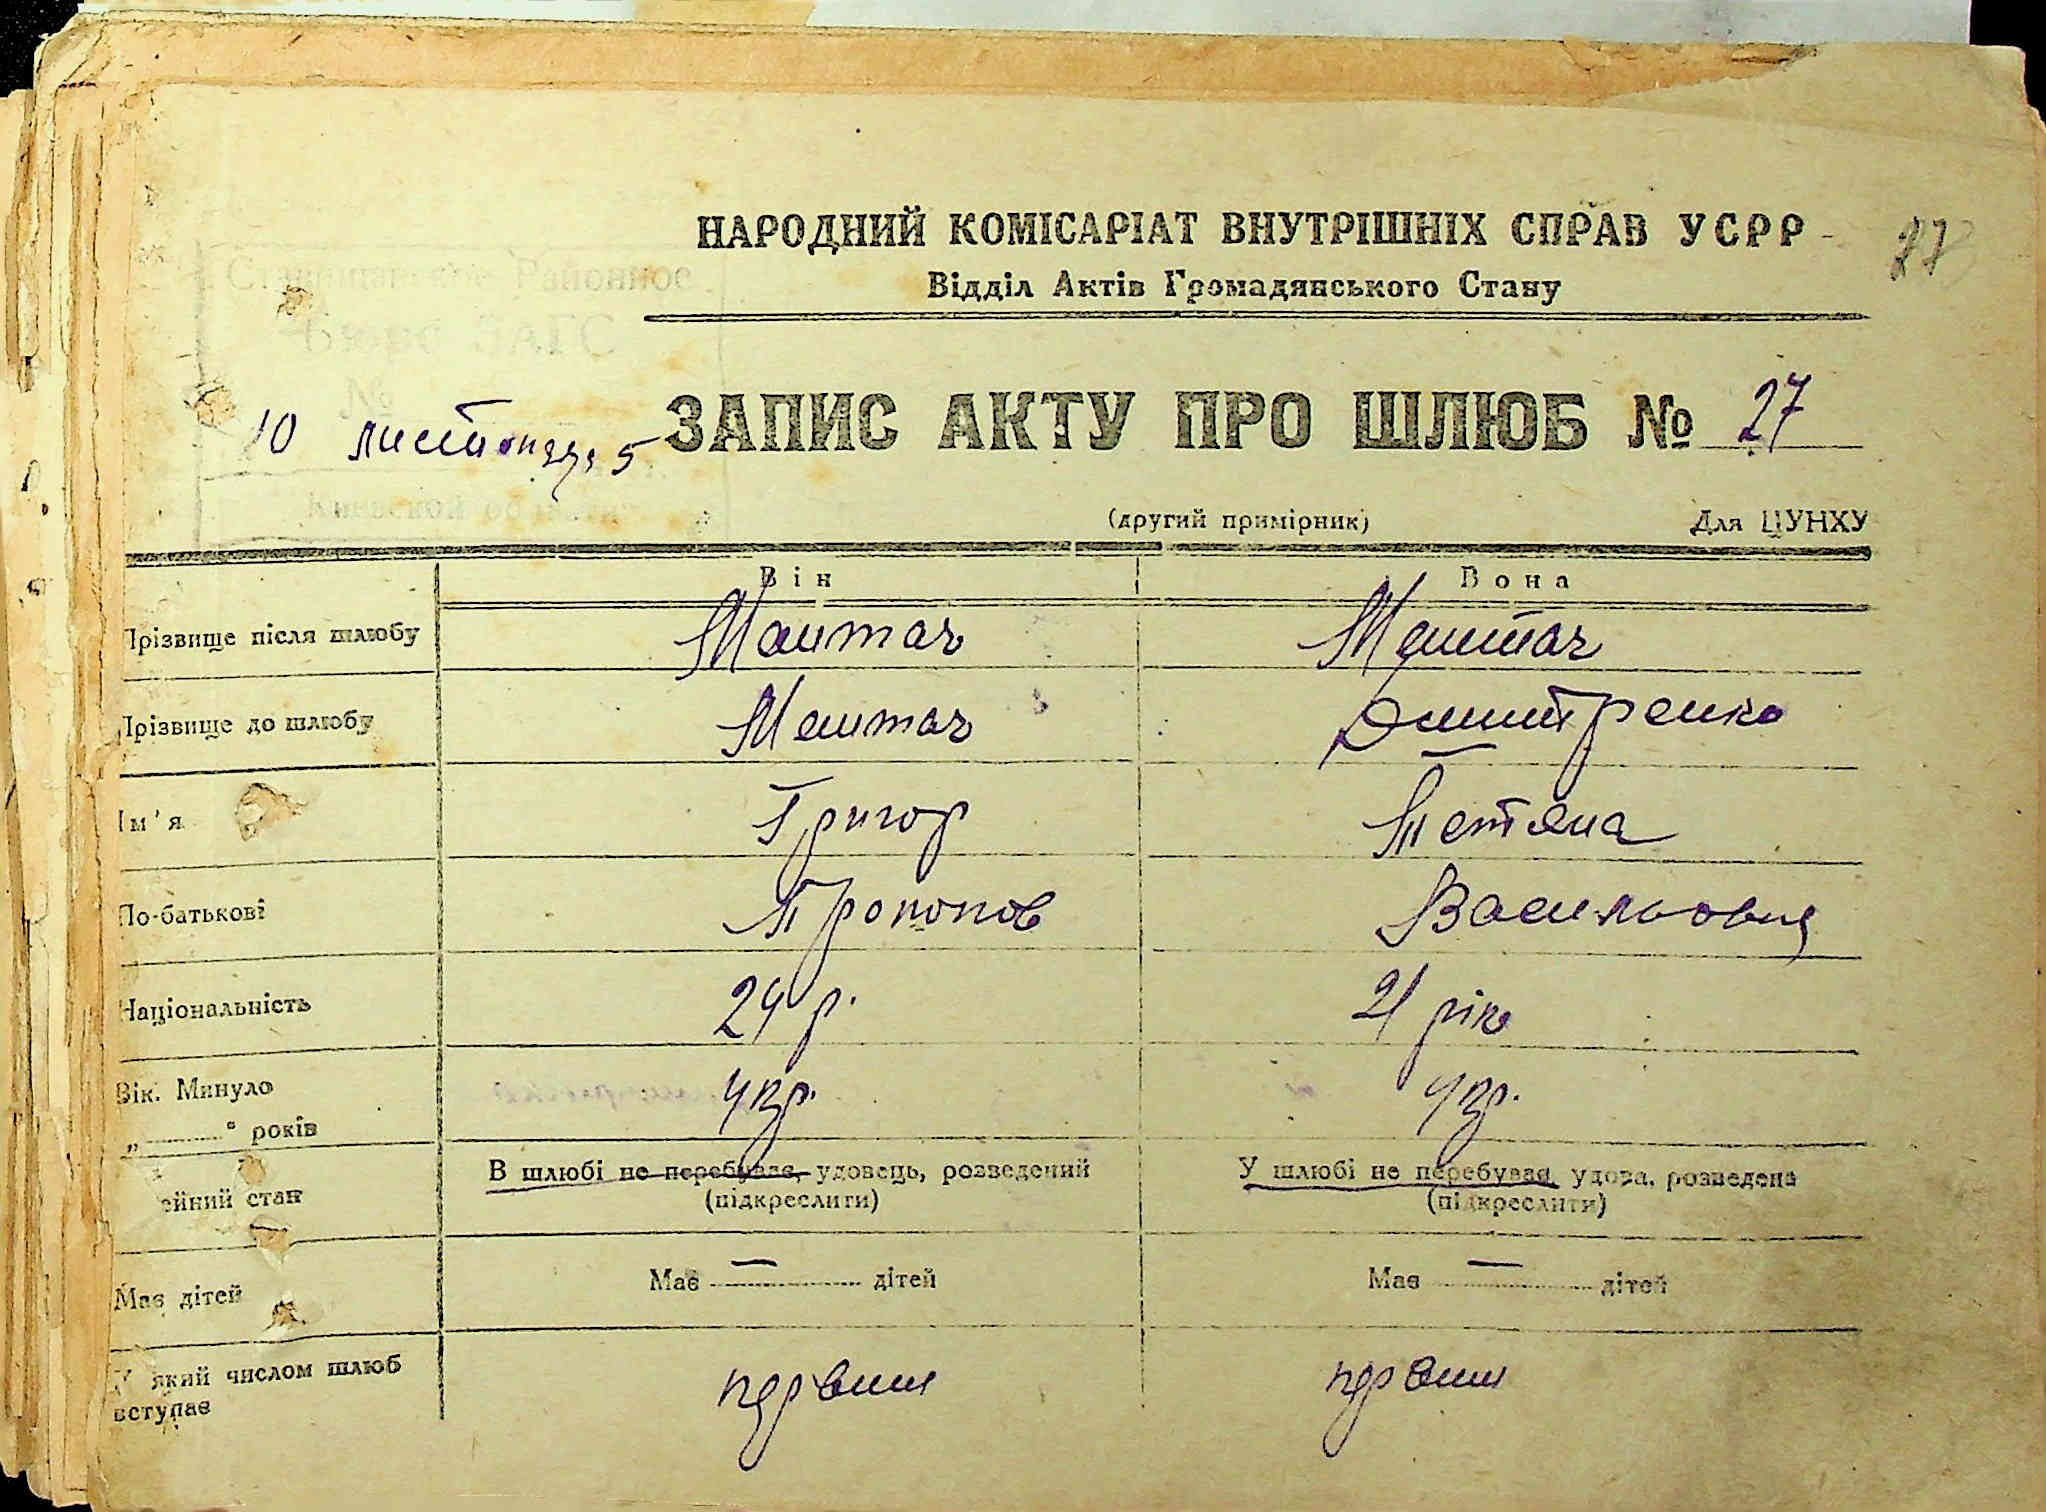 НАРОДНИЙ КОМІСАРІАТ ВНУТРІШНІХ СПРАВ УСРР
27
Відділ Актів Громадянського Стану
Районное
Бюро ЗАГС
№
10 листопада 5
ЗАПИС АКТУ ПРО ШЛЮБ № 27
Киевской области
(другий примірник) Для ЦУНХУ
Він Вона
Прізвище після шлюбу Маштач Маштач
Прізвище до шлюбу Маштач Дмитренко
Ім'я Григор Тетяна
По-батькові Прокопов Васильовня
Національність 24 р. 21 рік
Вік. Минуло укр. укр.
„ " років
ейний стан В шлюбі не перебував, удовець, розведений У шлюбі не перебувая, удова, розведена
(підкреслити) (підкреслити)
Має дітей Має — дітей Має — дітей
У який числом шлюб первий первий
вступає